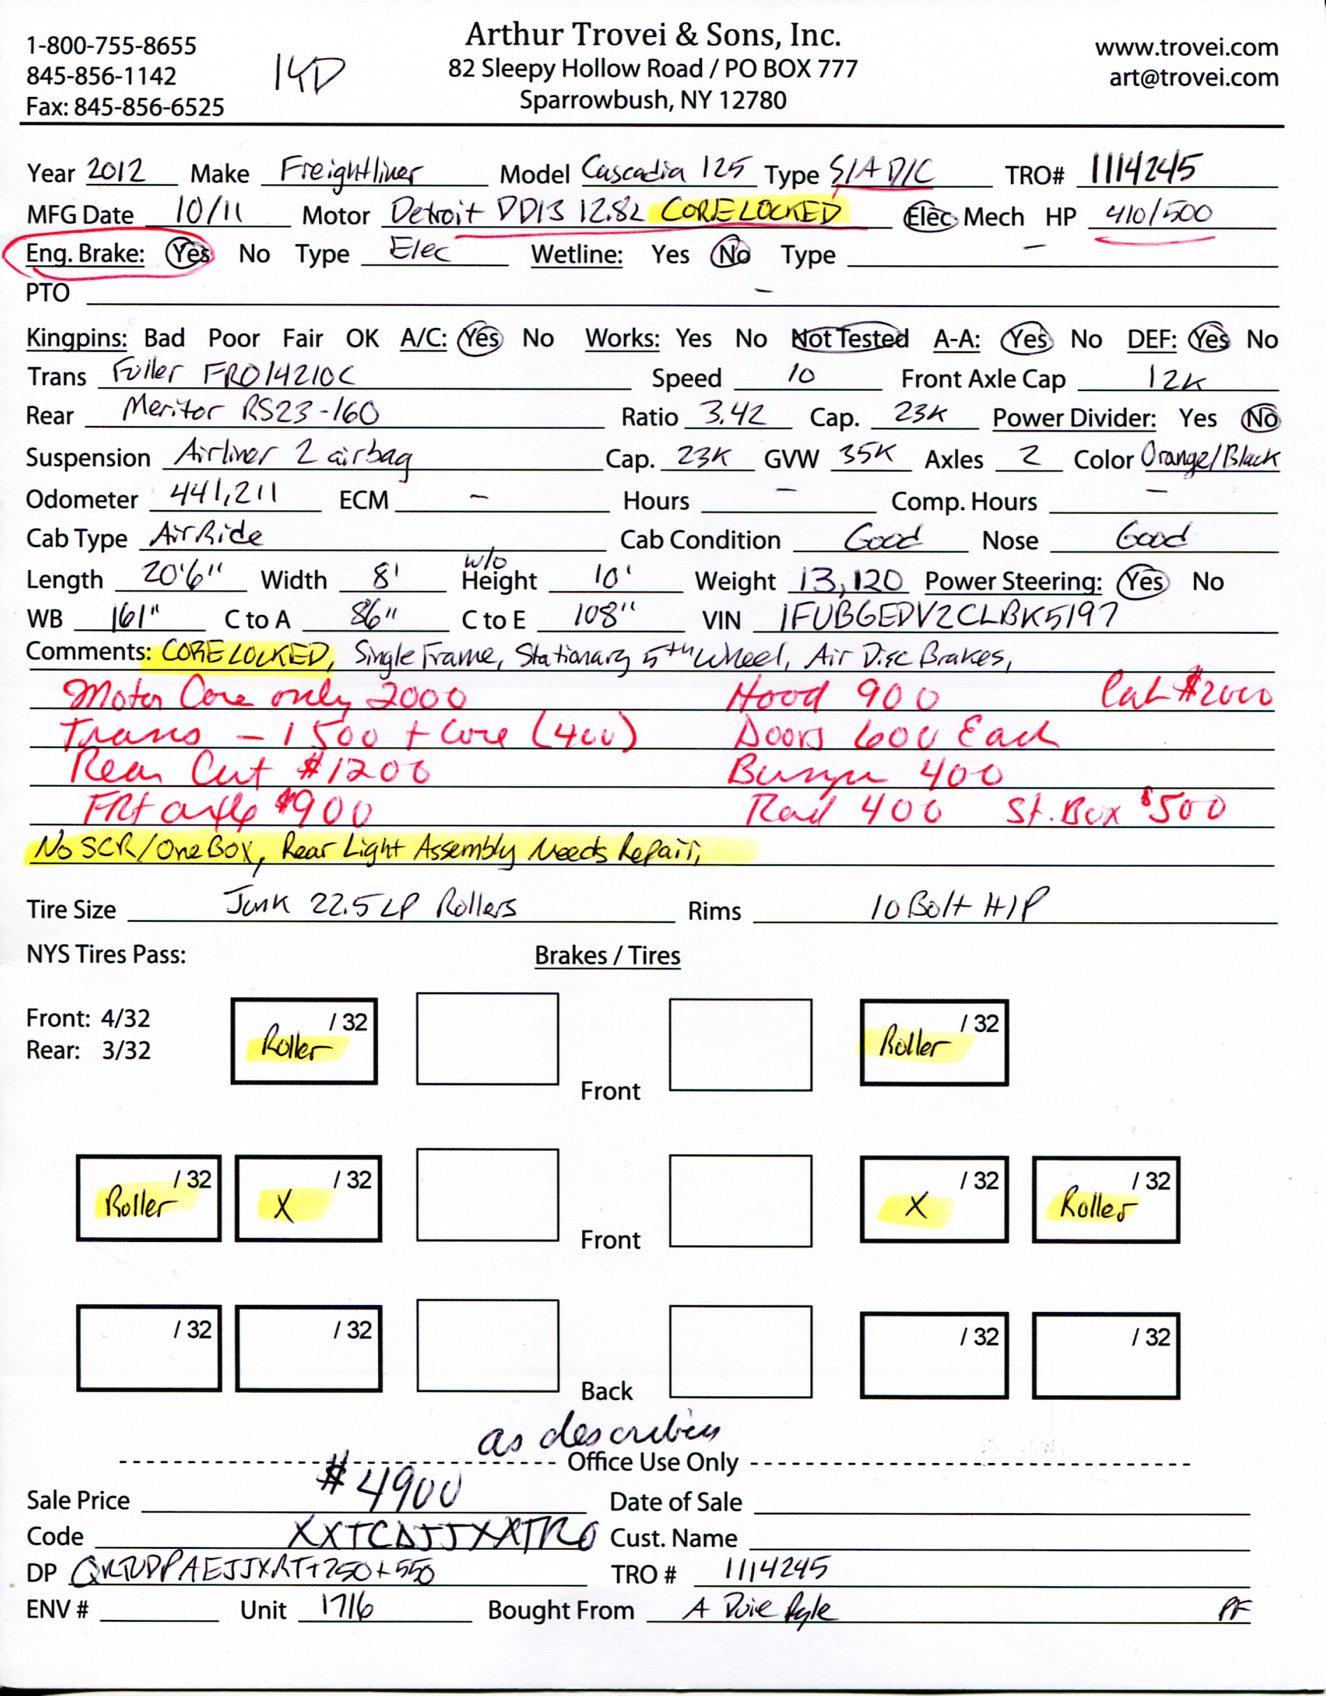 Arthur Trovei & Sons, Inc.
1-800-755-8655
82 Sleepy Hollow Road / PO BOX 777
www.trovei.com
845-856-1142
14D
art@trovei.com
Fax: 845-856-6525
Sparrowbush, NY 12780
Year 2012 Make Freightliner Model Cascadia 125 Type S/A D/C TRO# 1114245
MFG Date 10/11 Motor Detroit DD13 12.8L CORE LOCKED Elec Mech HP 410/500
Eng. Brake: Yes No Type Elec Wetline: Yes No Type -
PTO -
Kingpins: Bad Poor Fair OK A/C: Yes No Works: Yes No Not Tested A-A: Yes No DEF: Yes No
Trans Fuller FRO14210C Speed 10 Front Axle Cap 12K
Rear Meritor RS23-160 Ratio 3.42 Cap. 23K Power Divider: Yes No
Suspension Airliner 2 airbag Cap. 23K GVW 35K Axles 2 Color Orange/Black
Odometer 441,211 ECM - Hours - Comp. Hours -
Cab Type AirRide Cab Condition Good Nose Good
Length 20'6" Width 8' w/o Height 10' Weight 13,120 Power Steering: Yes No
WB 161" C to A 86" C to E 108" VIN 1FUBGEDV2CLBK5197
Comments: CORE LOCKED, Single Frame, Stationary 5th Wheel, Air Disc Brakes,
Motor Core only 2000 Hood 900 Cab $2000
Trans - 1500 + Core (400) Doors 600 Each
Rear Cut $1200 Bumper 400
FRt axle $900 Rad 400 St. Box $500
No SCR/One Box, Rear Light Assembly Needs Repair,
Tire Size Junk 22.5 LP Rollers Rims 10 Bolt H/P
NYS Tires Pass: Brakes / Tires
Front: 4/32
Rear: 3/32
/ 32 Roller / 32 Roller
Front
/ 32 Roller / 32 X / 32 X / 32 Roller
Front
/ 32 / 32 / 32 / 32
Back
as described
Office Use Only
Sale Price $4900 Date of Sale
Code XXTCDJJXXTRO Cust. Name
DP TRO # 1114245
ENV # Unit 1716 Bought From A Duie Pyle PF